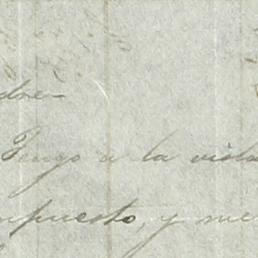 dre-
Tengo a la vista
mpuesto, y me